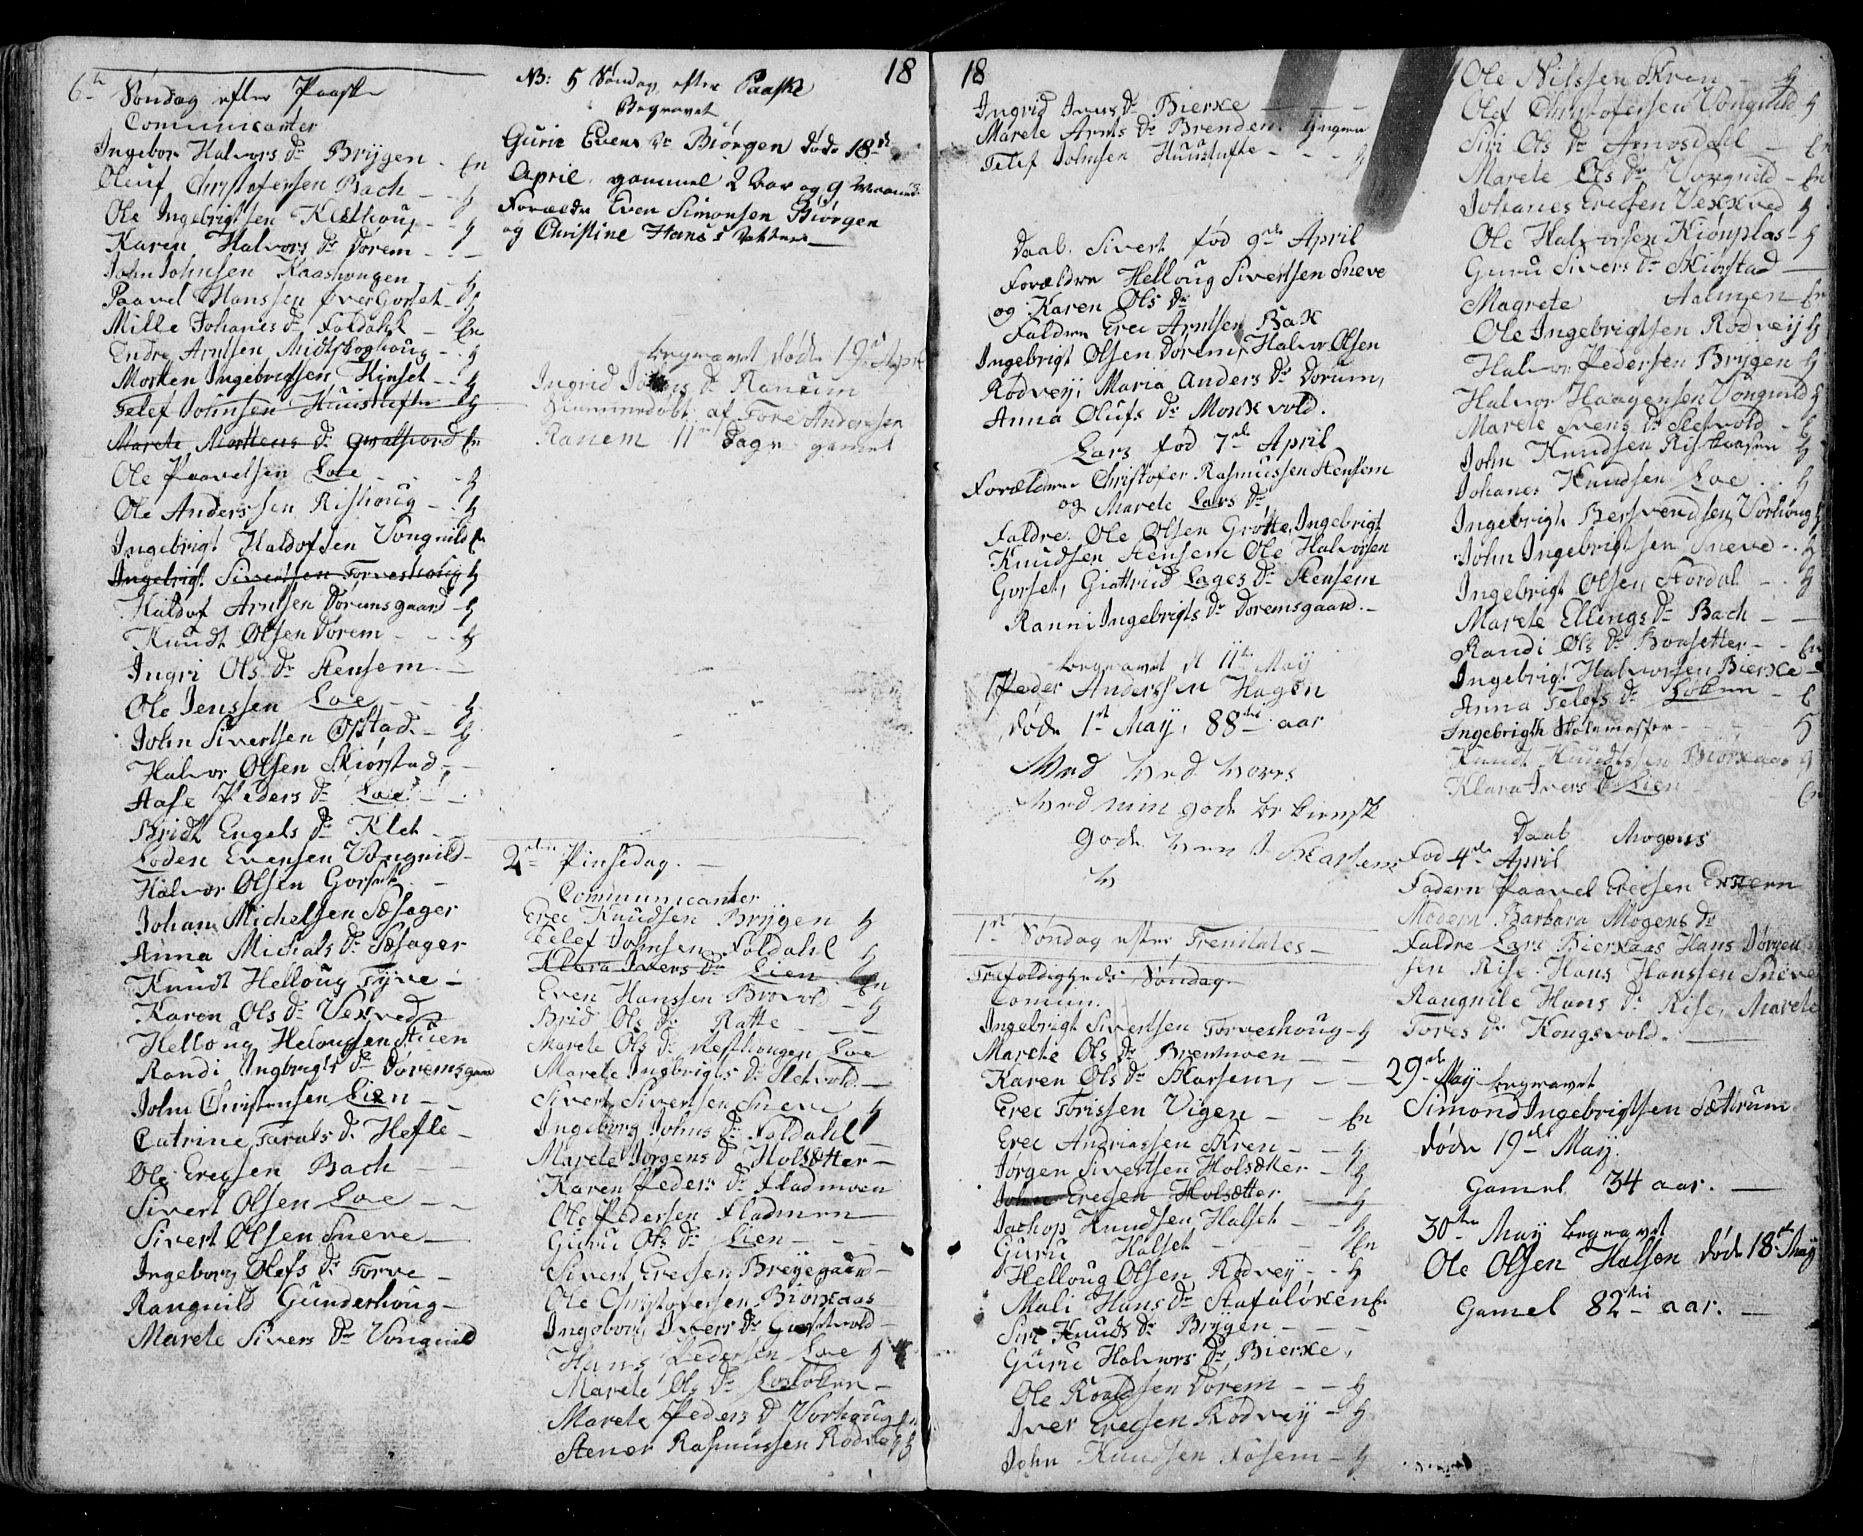 6te Søndag efter Paaske
Communicanter
Ingebor Halvors Dr Brÿgen - En
Oleuf Christofersen Bach - - h
Ole Ingebrigtsen Kletthoug - - h
Karen Halvors Dr Dorem - - -
John Johnsen Kaashougen - h
Paavel Hanssen Øver Gorset - h
Mille Johanes Dr Foldahl - En
Endre Arntsen Midtshoghoug - - h
Morten Ingebrigtsen Hinset - - h
Telef Johnsen Huustufte h
Marete Mortens Dr En
Ole Paavelsen Loe - - - h
Ole Anderssen Rishoug - - h
Ingebrigt Haldofsen Vongnild En
Ingebrigt Sivertsen Torveshoug h
Haldof Arntsen Doremsgaard - h
Knudt Olsen Dorem - - - h
Ingri Ols Dr Stensem - -
Ole Jenssen Loe - - - h
John Sivertsen Ofstad - - h
Halvor Olsen Skiørstad - -
Aase Peders Dr Loe - -
Bridt Engels Dr Klet - -
Loden Evensen Vongnild -
Halvor Olsen Gorset -
Johan Michelsen Sæsager
Anna Michals Dr Sæsager
Knudt Helloug Tÿve -
Karen Ols Dr Vexved
Helloug Helougsen Stuen
Randi Ingbrigts Dr Doremsgaard
John Christensen Lien - -
Catrine Tarals D. Hefle -
Ole Erecsen Bach - -
Sivert Olsen Loe - -
Sivert Olsen Sneve -
Ingeborg Olefs Dr Torve -
Rangnild Gunderhoug -
Marete Sivers Dr Vongnild
NB: 5 Søndag efter Paaske 18
Begravet
Gurie Evens Dr Biørgen døde 18de
April gammel 2 aar og 9 maaned
Forældre Even Simonsen Biørgen
og Christine Hans Datter -
begravet døde 19de April
Ingrid Dr Ranum
hiemmedøbt af Tore Andersen
Ranem 11 dage gamel
2den Pinsedag. -
Communicanter
Erec Knudsen Brÿgen h
Telef Johnsen Foldahl h
Klara Ivers Dr Lien En
Even Hanssen Brovold - h
Brid Ols Dr Ratte - - -
Marete Ols Dr Resthougen Loe
Marete Ingbrigts Dr Sletvold -
Sivert Sivertsen Sneve h
Ingeborg Johns Dr Foldahl -
Marete Jørgens D Holsætter -
Karen Peders Dr Fladmoen
Ole Pedersen Fladmoen
Guru Ols Dr Lien - - -
Sivert Erecsen Breÿegaard -
Ole Christofersen Biørkaas
Ingeborg Ivers Dr Gisetvold -
Hans Pedersen Loe h
Marete Ols Dr Losløken -
Marete Peders D Vorhoug En
Stener Rasmussen Rodveÿ h
18
Ingrid Jens Dr Bierke - - -
Marete Arnts Dr Brenden. ÿngre
Telef Johnsen Huustufte - - - h
Daab. Sivert fød 9de April
Forældre Helloug Sivertsen Sneve
og Karen Ols Dr
Faldre Erec Arntsen Bax
Ingebrigt Olsen Dorem, Halvor Olsen
Rodveÿ, Maria Anders Dr Dorum,
Anna Olufs Dr Monxvold.
Lars fød 7de April
Forældre Christofer Rasmussen Stensem
og Marete Lars Dr
Faldre. Ole Olsen Grøtte, Ingebrigt
Knudsen Stensem Ole Halvorsen
Gorset, Giøttrud Lages Dr Stensem
Ranni Ingebrigts Dr Doremsgaard. -
begravet d 11te Maÿ
Peder Anderssen Hagen
døde 1st Maÿ, 88 aar
Med hved hvers
hved min gode
gode
1st Søndag efter Trenitates -
Trefoldigheds Søndag
Comun.
Ingebrigt Sivertsen Torveshoug - h
Marete Ols Dr Brenmoen - -
Karen Ols Dr Skarsem, - -
Erec Torissen Vigen - - En
Erec Andriassen Kren - - h
Jørgen Sivertsen Holsæker - h
John Erecsen Holsætter - h
Jachop Knudsen Halset - - h
Guru Halset - - En
Helloug Olsen Rodveÿ - - h
Mali Hans Dr Stafaløxen En
Siri Knuds Dr Brÿgen - - -
Guru Halvors Dr Bierke,
Ole Roaldsen Dorem - - h
Iver Erecsen Rodveÿ - h
John Knudsen Fosem - h
Ole Nilssen Kren - h
Olef Christofersen Vongnild h
Siri Ols Dr Amosdahl - En
Marete Ols Dr Vongnild - En
Johanes Erecsen Vexxved h
Ole Halvorsen Kiønplas - h
Guru Sivers Dr Skiørstad -
Magrete Aalmen En
Ole Ingebrigtsen Rodveÿ h
Halvor Pedersen Brÿgen h
Halvor Haagensen Vongnild h
Marete Svens Dr Sletvold - E
John Knudsen Risthaasen h
Johanes Knudsen Loe . . h
Ingebrigt Bersvendsen Vorhoug h
John Ingebrigtsen Sneve - . h
Ingebrigt Olsen Stordal - . h
Marete Ellings Dr Bach - -
Randi Ols Dr Bonsetter - - En
Ingebrigt Halvorsen Bierke - -
Anna Telefs Dr Løkken - E
Ingebrigth Skolemester - - h
Knudt Knudtssen Biørkaas h
Klara Ivers D Lien En
Daab Mogens
Fød 4de April
Fadern Paavel Erecsen
Modern Barbara Mogens Dr
Faldre Lars Bierkaas Hans Jørgen
sen Rise. Hans Hanssen Sneve
Rangnile Hans Dr Rise, Marete
Tores Dr Kongsvold. -
29de Maÿ begravet
Simond Ingebrigtsen Sættrum
døde 19de Maÿ.
Gamel 34 aar. -
30te Maÿ begravet
Ole Olsen Halsen døde 18de Maÿ
Gamel 82 aar. -